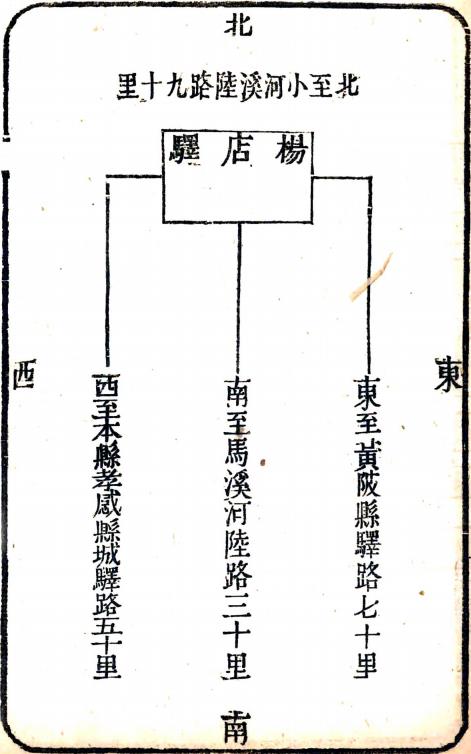 北
北至小河溪陸路九十里
楊店驛
東
東至黃陂縣驛路七十里
南至馬溪河陸路三十里
西至本縣孝感縣城驛路五十里
西
南